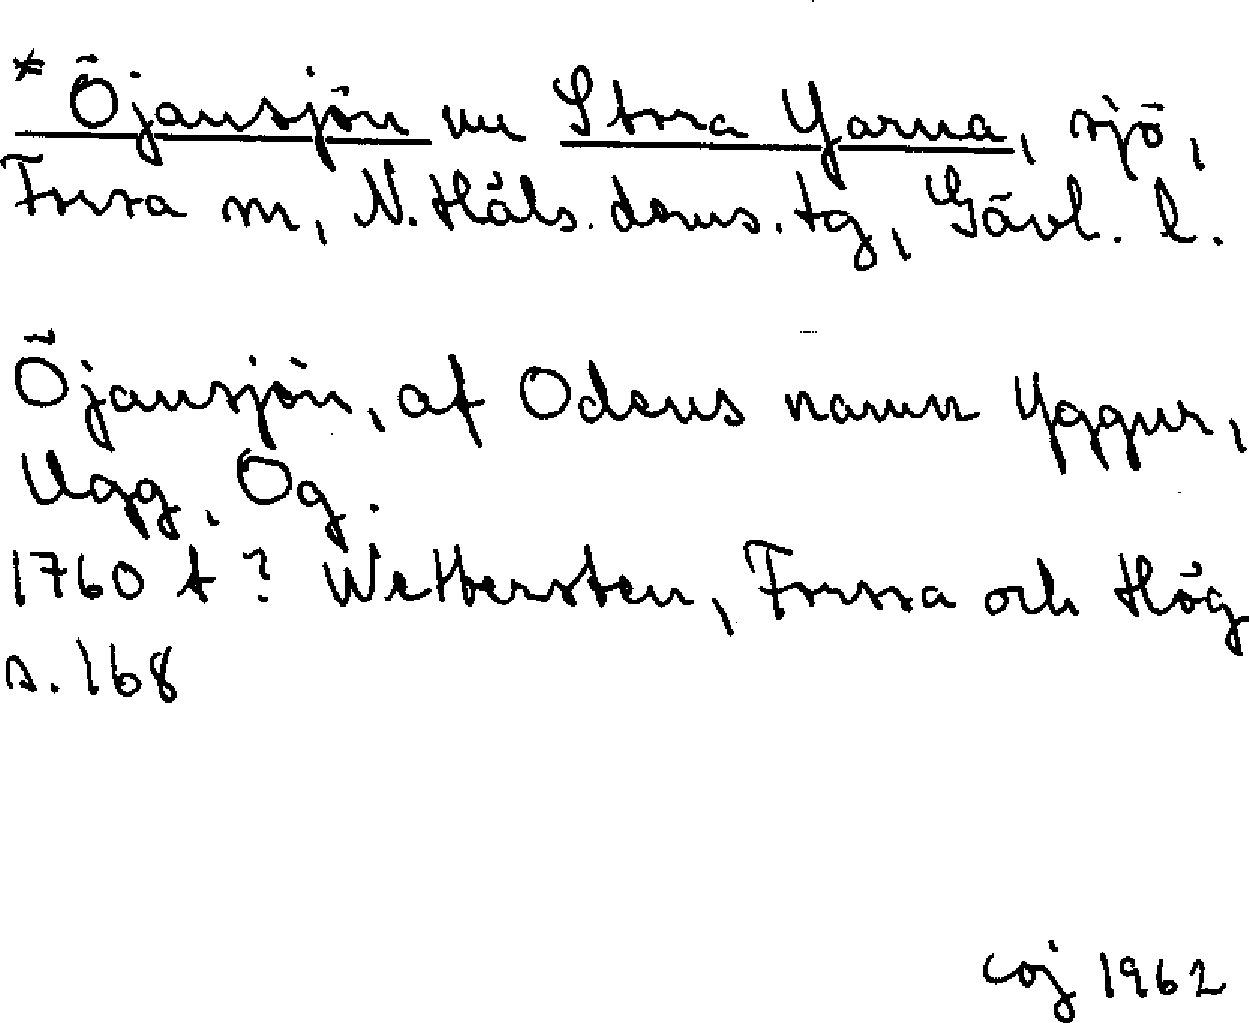 * Öjansjön nu Stora Yarna, sjö,
Forsa sn, N. Häls. doms. tg, Gävl. l.
Öjansjön, af Odens namn Yggur,
Ugg, Og.
1760 t? Wettersten, Forssa och Hög
s. 168
coj 1962